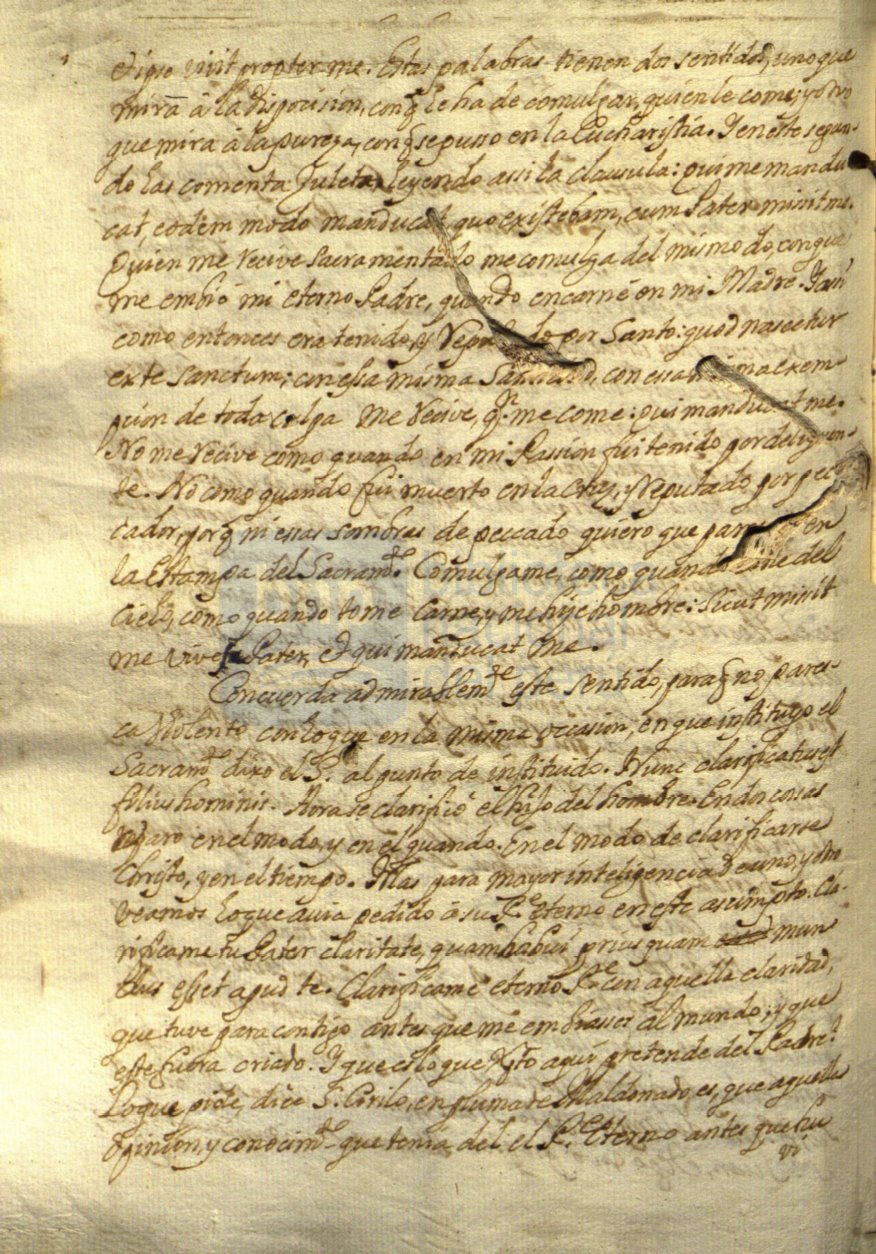 et ipse vivit propter me. Estas palabras tienen dos sentidos, uno que
mira â la disposision, con q̃ le ha de comulgar, quien le come; y otro
que mira â la pureza, con q̃ se pusso en la Eucharistia. Y en este segun-
do las comenta Juleta, leyendo assi la clausula: Qui me mandu
cat, eodem modo manducat, quo existebam, cum Pater missit me.
Quien me recive Sacramentado me comulga del mismo modo, con que
me embió mi eterno Padre, quando encarné en mi Madre. Y assi
como entonces era tenido, y Reputado por Santo: quod nascetur
ex te Sanctum; con essa misma Santidad, con essa misma exem-
pcion de toda culpa me recive, qn. me come: qui manducat me.
No me recive como quando en mi Passion fui tenido por delinquen-
te. No como quando fui muerto en la Cruz, y reputado por pec
cador, porq̃ ni essas sombras de peccado quiero que en
la Estampa del Sacramto. Comulgame, como quando del
cielo, como quando tomé carne, y me hize hombre: Sicut missit
me vivens Pater, et qui manducat me.
Concuerda admirablemte. este sentido, para q̃ no pares-
ca violento con lo que en la misma occasion, en que instituyo el
Sacramto. dixo el Sr. al punto de instituido. Nunc clarificatus est
filius hominis. Aora se clarificó el hijo del hombre. En dos cossas
reparo en el modo, y en el quando. En el modo de clarificarse
Christo, y en el tiempo. Mas para mayor inteligencia de uno, y otro
veamos lo que avia pedido â su Pe. Eterno en este assumpto. Cla-
rifica me tu Pater claritate, quam habui prius quam mun
dus esset apud te. Clarificame eterno Pe. con aquella claridad,
que tuve para contigo antes que me embiasses al mundo, y que
este fuera criado. Y que es lo que Xpto aqui pretende del Padre?
Lo que pide, dice S. Cirilo, en pluma de Maldonado, es, que aquella
opinion, y conocimto. que tenia del el Pe. Eterno antes que hu
vi